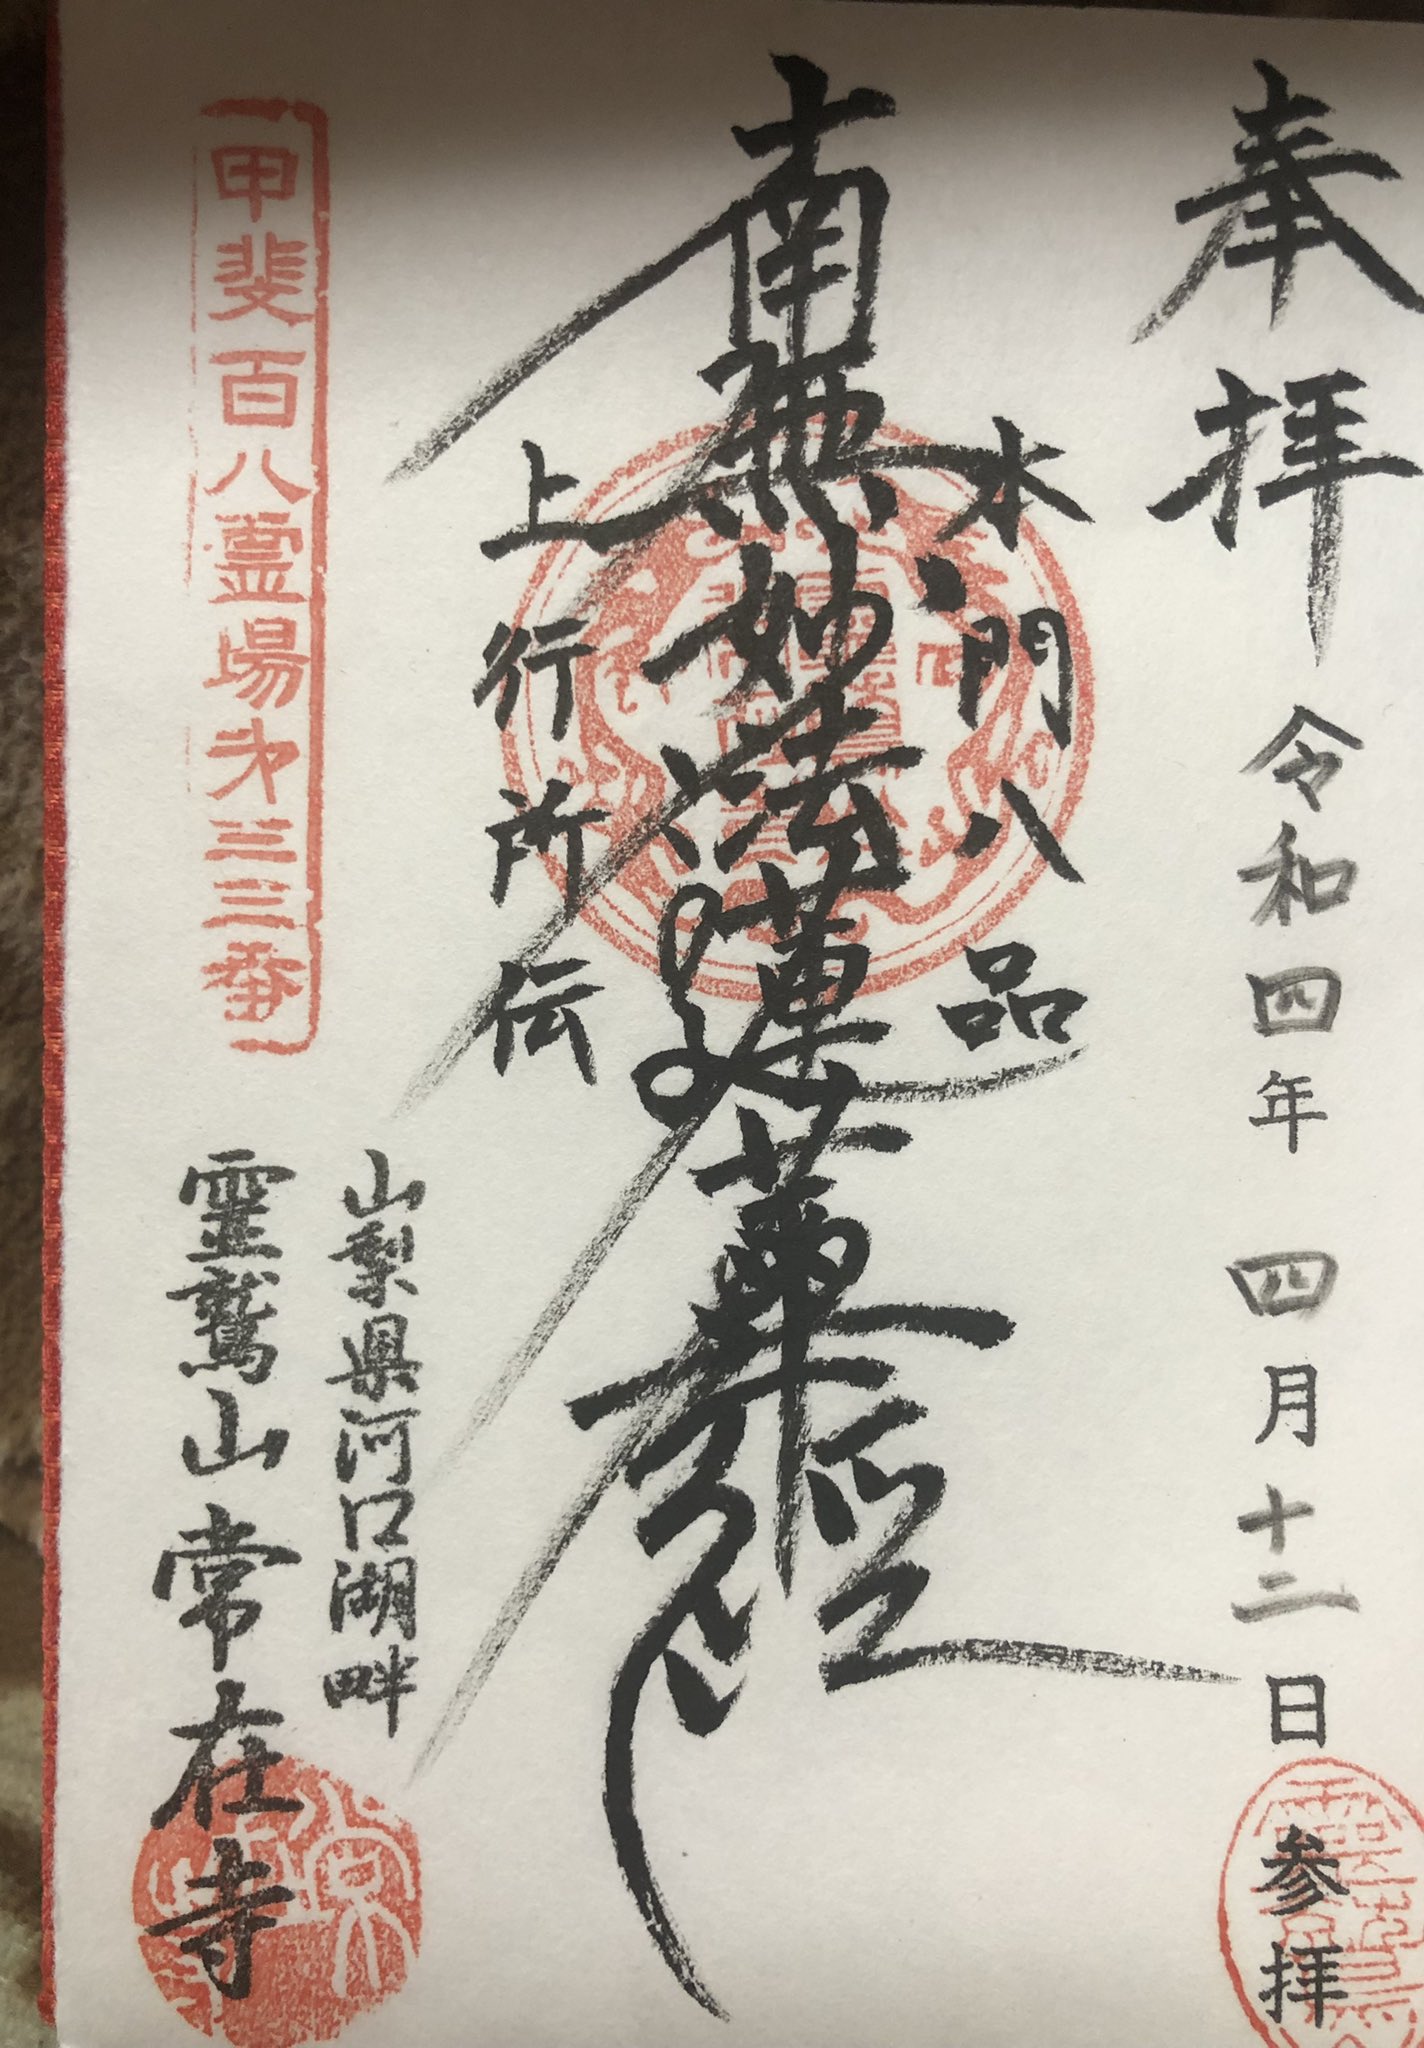 奉拝
令和四年 四月十二日 参拝
本門八品
南無妙法蓮華経
上行所伝
山梨県河口湖畔
霊鷲山 常在寺
甲斐百八霊場第三三番